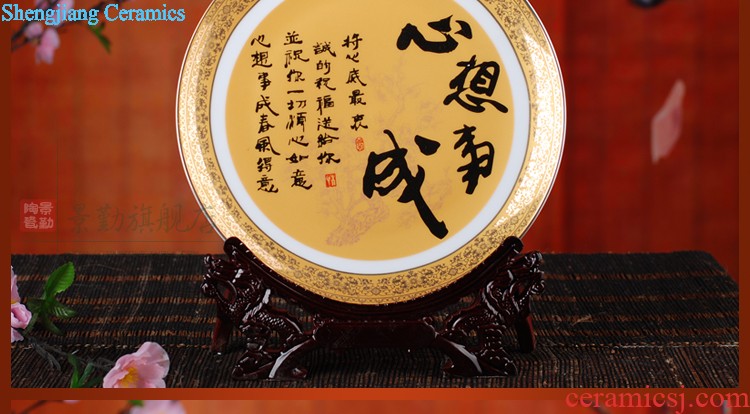 Shengjiang Ceramics
心想事成
将心底最衷
誠的祝福送給你
並祝你一切順心如意
心想事成春風得意
景勤
陶瓷
景勤旗舰店
ceramicsj.com